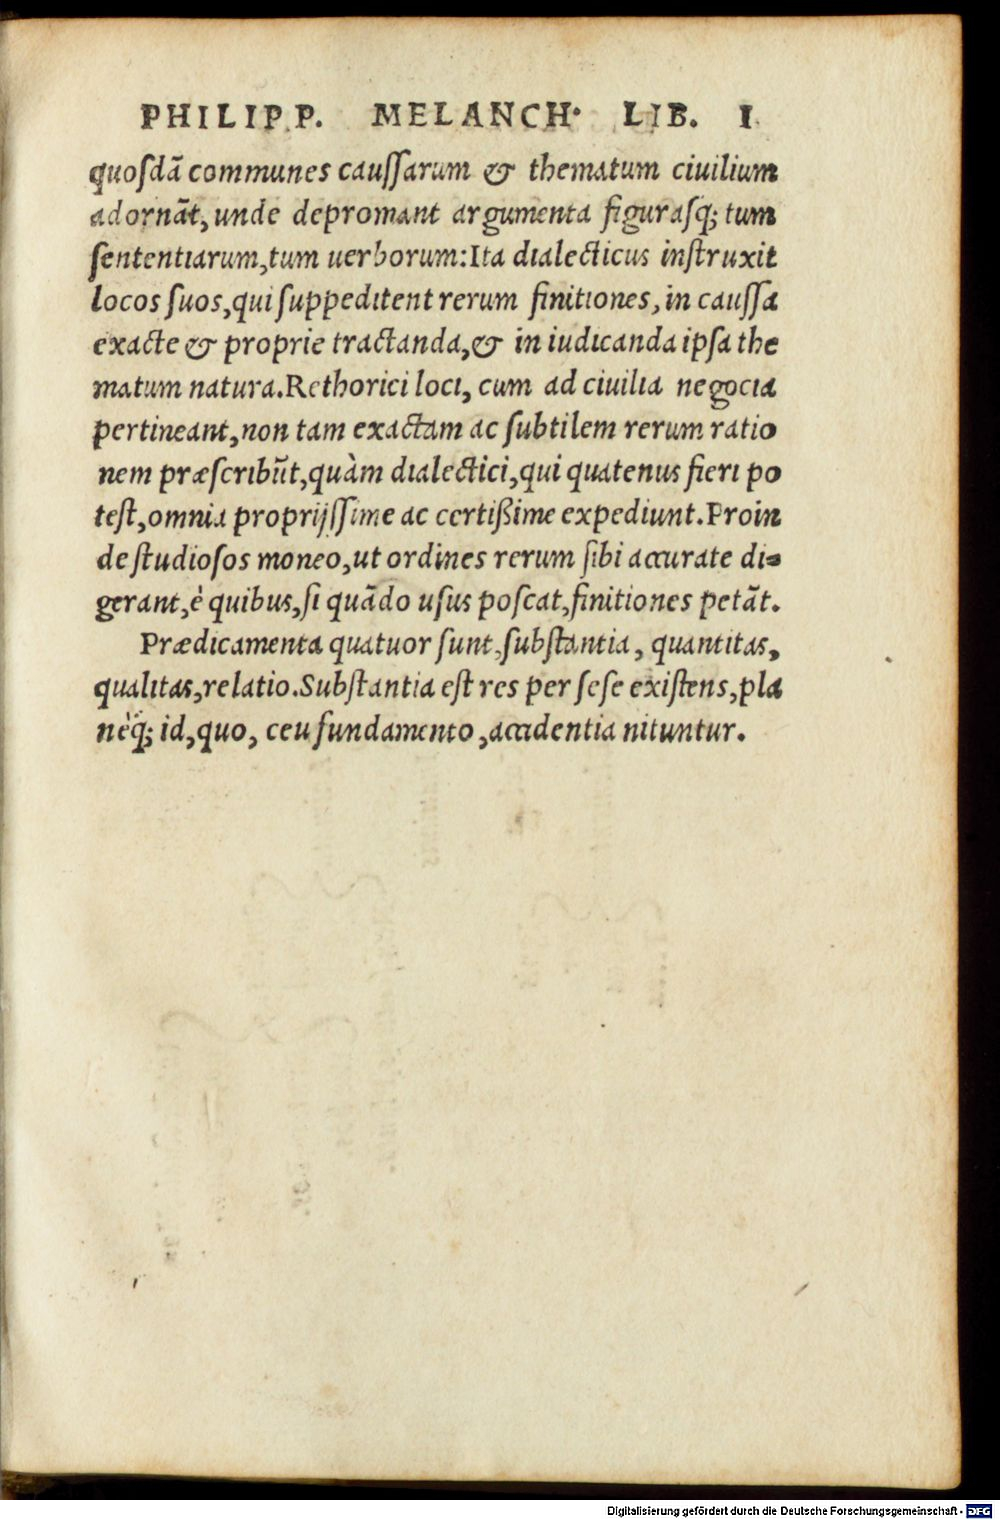 PHILIPP. MELANCH. LIB. I
quosdã communes caussarum & thematum ciuilium
adornãt, unde depromant argumenta figurasq; tum
sententiarum, tum uerborum: Ita dialecticus instruxit
locos suos, qui suppeditent rerum finitiones, in caussa
exacte & proprie tractanda, & in iudicanda ipsa the
matum natura. Rethorici loci, cum ad ciuilia negocia
pertineant, non tam exactam ac subtilem rerum ratio
nem præscribũt, quàm dialectici, qui quatenus fieri po
test, omnia proprijssime ac certißime expediunt. Proin
de studiosos moneo, ut ordines rerum sibi accurate di-
gerant, è quibus, si quãdo usus poscat, finitiones petãt.
Prædicamenta quatuor sunt, substantia, quantitas,
qualitas, relatio. Substantia est res per sese existens, pla
nèq; id, quo, ceu fundamento, accidentia nituntur.
Digitalisierung gefördert durch die Deutsche Forschungsgemeinschaft - DFG